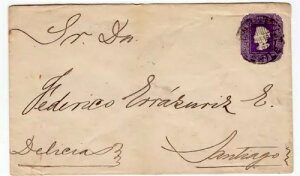 Sr. Dn.
Federico Errázuriz E.
Delicia
Santiago